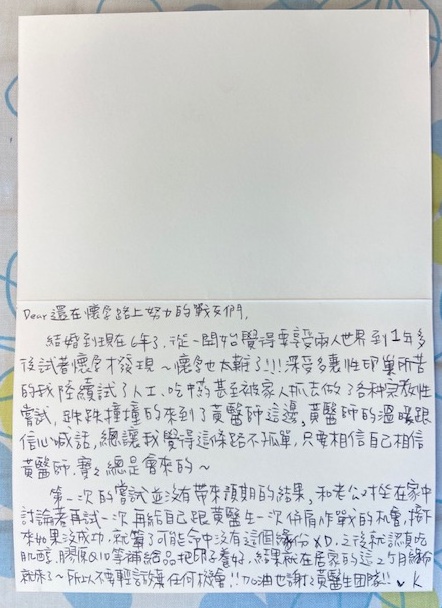 Dear 還在懷孕路上努力的戰友們,
結婚到現在6年了,從一開始覺得要享受兩人世界到1年多
後試著懷孕才發現~懷孕也太難了!!!深受多囊性卵巢所苦
的我陸續試了人工、吃中藥甚至被家人抓去做了各種宗教性
嘗試,跌跌撞撞的來到了黃醫師這邊,黃醫師的溫暖跟
信心喊話,總讓我覺得這條路不孤單,只要相信自己相信
黃醫師,寶寶總是會來的~
第一次的嘗試並沒有帶來預期的結果,和老公才坐在家中
討論著再試一次再給自己跟黃醫生一次併肩作戰的機會,接下
來如果沒成功,就算了可能命中沒有這個緣份XD,之後就認真吃
肌醇,膠原Q10等補給品把卵子養好,結果就在居家的這2個月緣份
就來了~所以不要輕談放棄任何機會!!加油也謝謝黃醫生團隊!! K